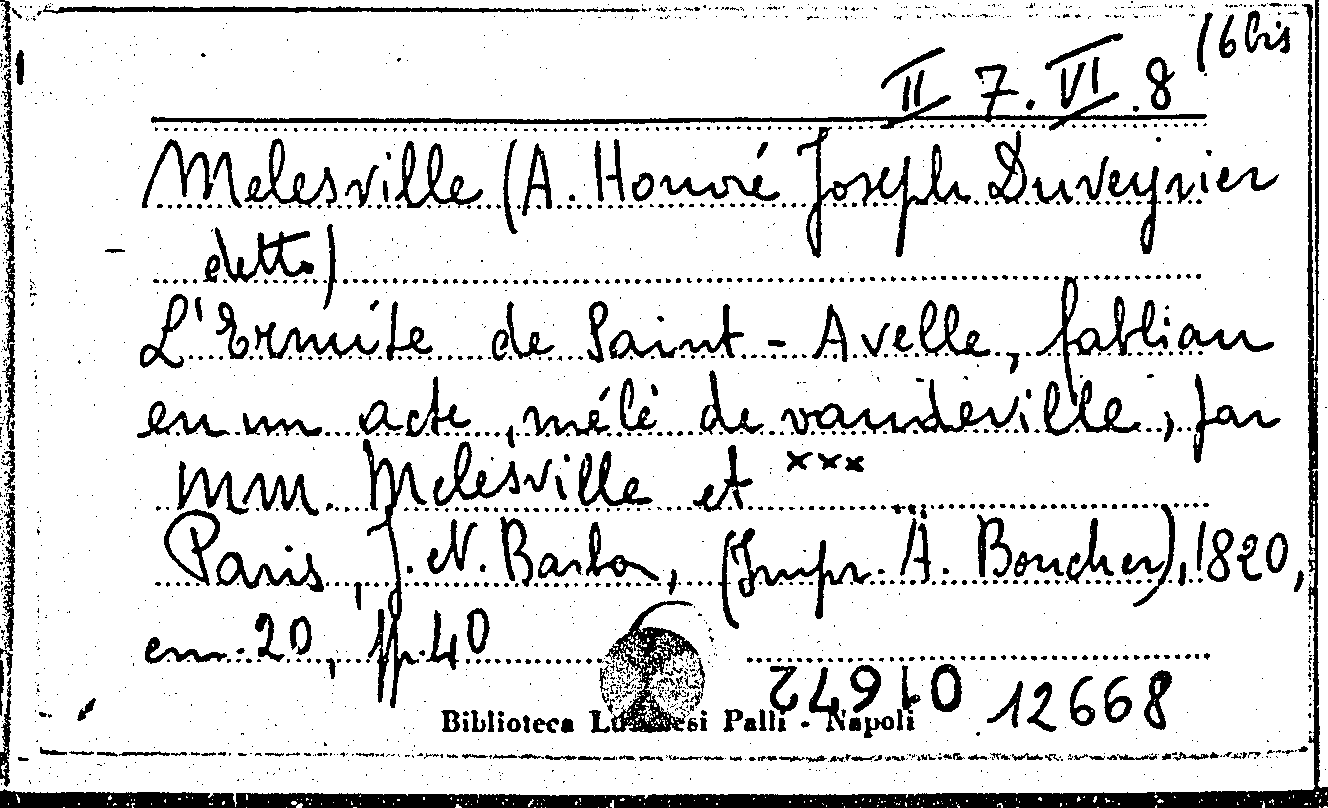 II 7. VI. 8 (6 bis
Melesville (A. Honoré Joseph Duveyrier
detto)
L'Ermite de Saint-Avelle, fabliau
en un acte, mêlé de vaudeville, par
MM. Melesville et ×××
Paris, J. N. Barba, (Impr. A. Boucher), 1820,
cm. 20, pp. 40
016472 12668
Biblioteca Lucchesi Palli - Napoli